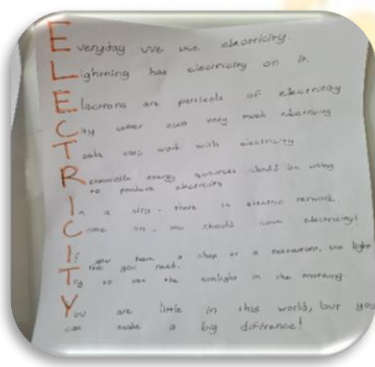 Everyday we use electricity.
Lightning has electricity on it.
Electrons are particals of electricity
City uses very much electricity
work with electricity
Renewable energy should be using
to produce electricity
In a there is electric network
Come on, we should save electricity!
If you have a shop or a restaurant, use light
that you need.
Try to use the sunlight in the morning.
You are little in this world, but you
can make a big diffrence!